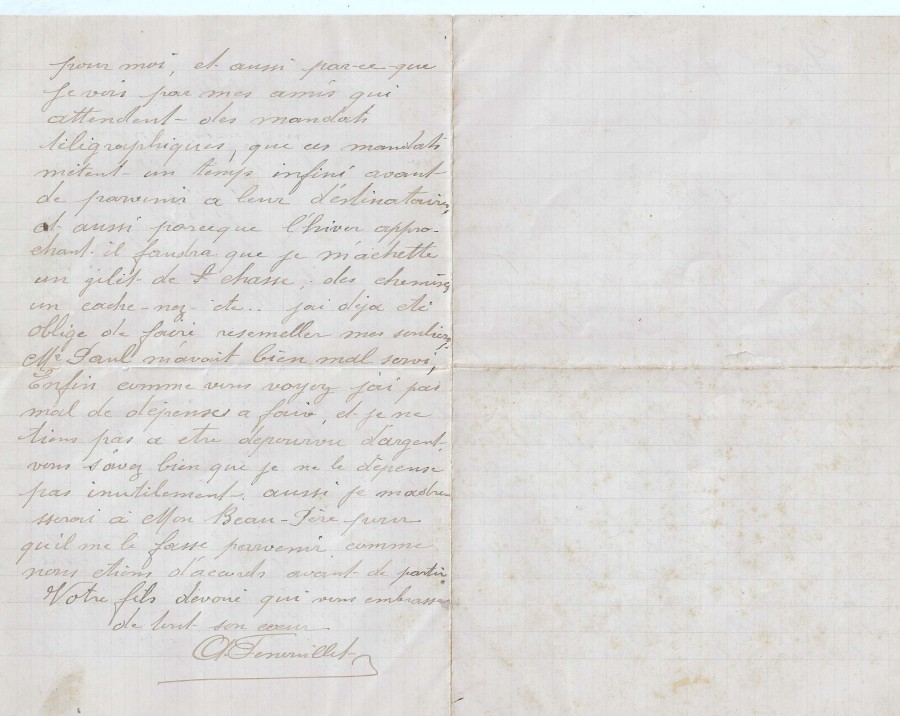 pour moi, et aussi par-ce-que
je vois par mes amis qui
attendent des mandats
téligraphiques, que ces mandats
mètent un temps infini avant
de parvenir a leur déstinataires,
et aussi parceque l'hiver appro-
chant il faudra que je m'achette
un gilit de chasse, des chemises
un cache-nez etc.. jai déja été
oblige de faire resemeller mes souliers,
Mr Paul m'avait bien mal servi,
Enfin comme vous voyez j'ai pas
mal de dépenses a faire, et je ne
tiens pas a etre dépourvu d'argent,
vous savez bien que je ne le dépense
pas inutilement. aussi je madre
sserai à Mon Beau-Père pour
qu'il me le fasse parvenir comme
nous etions d'acords avant de partir
Votre fils devoué qui vous embrasse
de tout son cœur
A Fenouillet